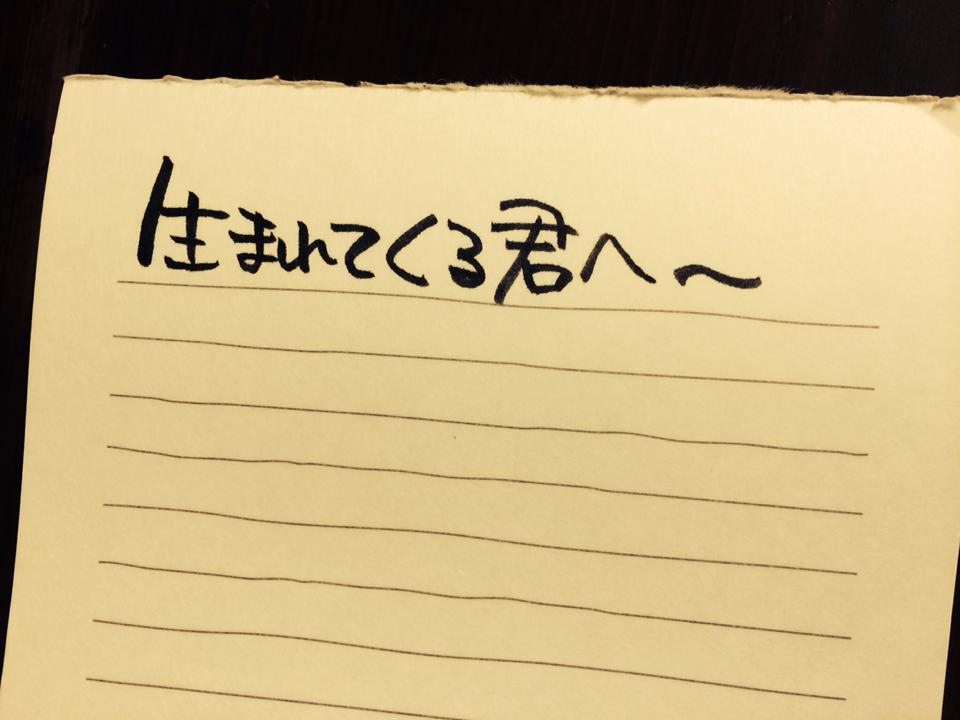 生まれてくる君へ〜